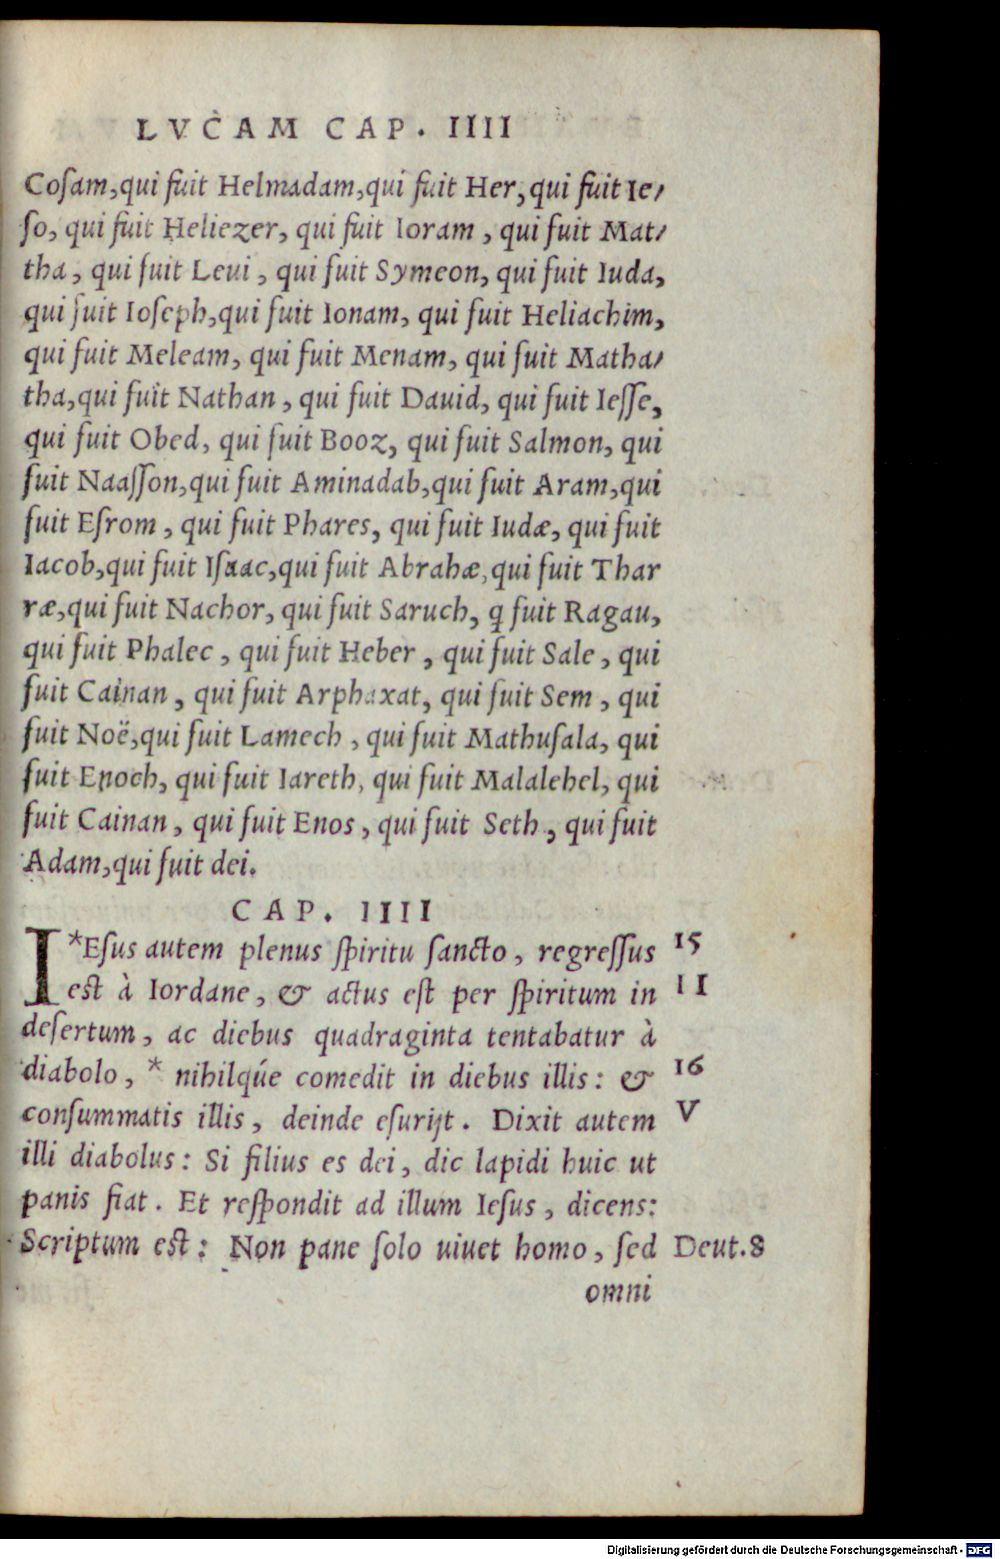 LVCAM CAP. IIII
Coſam,qui fuit Helmadam,qui fuit Her,qui fuit Ie/
ſo, qui fuit Heliezer, qui fuit Ioram, qui fuit Mat/
tha, qui fuit Leui, qui fuit Symeon, qui fuit Iuda,
qui fuit Ioſeph,qui fuit Ionam, qui fuit Heliachim,
qui fuit Meleam, qui fuit Menam, qui fuit Matha/
tha,qui fuit Nathan, qui fuit Dauid, qui fuit Ieſſe,
qui fuit Obed, qui fuit Booz, qui fuit Salmon, qui
fuit Naaſſon,qui fuit Aminadab,qui fuit Aram,qui
fuit Eſrom, qui fuit Phares, qui fuit Iudæ, qui fuit
Iacob,qui fuit Iſaac,qui fuit Abrahæ,qui fuit Thar
ræ,qui fuit Nachor, qui fuit Saruch, ꝗ fuit Ragau,
qui fuit Phalec, qui fuit Heber, qui fuit Sale, qui
fuit Cainan, qui fuit Arphaxat, qui fuit Sem, qui
fuit Noë,qui fuit Lamech, qui fuit Mathuſala, qui
fuit Enoch, qui fuit Iareth, qui fuit Malalehel, qui
fuit Cainan, qui fuit Enos, qui fuit Seth, qui fuit
Adam,qui fuit dei.
CAP. IIII
I*Eſus autem plenus ſpiritu ſancto, regreſſus 15
eſt à Iordane, & actus eſt per ſpiritum in II
deſertum, ac diebus quadraginta tentabatur à
diabolo, * nihilqúe comedit in diebus illis: & 16
conſummatis illis, deinde eſurijt. Dixit autem V
illi diabolus: Si filius es dei, dic lapidi huic ut
panis fiat. Et reſpondit ad illum Ieſus, dicens:
Scriptum eſt: Non pane ſolo uiuet homo, ſed Deut.8
omni
Digitalisierung gefördert durch die Deutsche Forschungsgemeinschaft - DFG